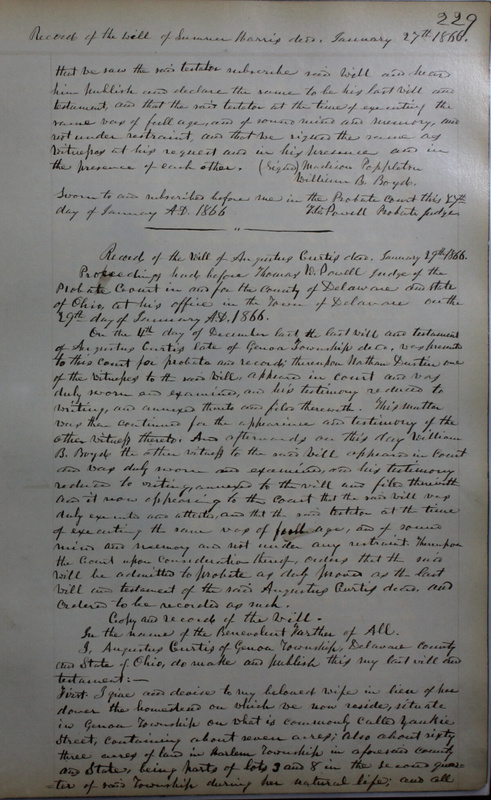 229
Record of the Will of Sumner Harris decd. January 27th 1866.
that we saw the said testator subscribe said Will and heard
him publish and declare the same to be his last will and
testament, and that the said testator at the time of executing the
same was of full age, and of sound mind and memory, and
not under restraint, and that we signed the same as
witnesses at his request and in his presence and in
the presence of each other. (Signed) Madison Poppleton
William B. Boyd.
Sworn to and subscribed before me in the Probate Court this 27th
day of January A.D. 1866 Thos Powell Probate Judge
Record of the Will of Augustus Curtis decd. January 29th 1866.
Proceedings had before Thomas W. Powell Judge of the
Probate Court in and for the County of Delaware and State
of Ohio, at his office in the Town of Delaware on the
29th day of January A.D. 1866.
On the 4th day of December last, the last will and testament
of Augustus Curtis late of Genoa Township decd. was presented
to this Court for probate and record; thereupon Nathan Dustin one
of the witnesses to the said Will, appeared in Court and was
duly sworn and examined, and his testimony reduced to
writing, and annexed thereto and filed therewith. This matter
was then continued for the appearance and testimony of the
other witness thereto. And afterwards on this day William
B. Boyd the other witness to the said Will appeared in Court
and was duly sworn and examined, and his testimony
reduced to writing, annexed to the will and filed therewith
and it now appearing to the Court that the said will was
duly executed and attested, and that the said testator at the time
of executing the same was of full age, and of sound
mind and memory and not under any restraint. Thereupon
the Court upon consideration thereof, orders that the said
Will be admitted to probate as duly proved as the last
Will and testament of the said Augustus Curtis decd. and
Ordered to be recorded as such.
Copy and record of the Will.
In the name of the Benevolent Farther of All.
I, Augustus Curtis of Genoa Township, Delaware County
and State of Ohio, do make and publish this my last will and
testament:—
First. I give and devise to my beloved wife in lieu of her
dower the homestead on which we now reside, situate
in Genoa Township on what is commonly called Yankie
Street, containing about seven acres; Also about sixty
three acres of land in Harlem Township in aforesaid county
and State, being parts of lots 3 and 8 in the second quar-
ter of said Township during her natural life; and all